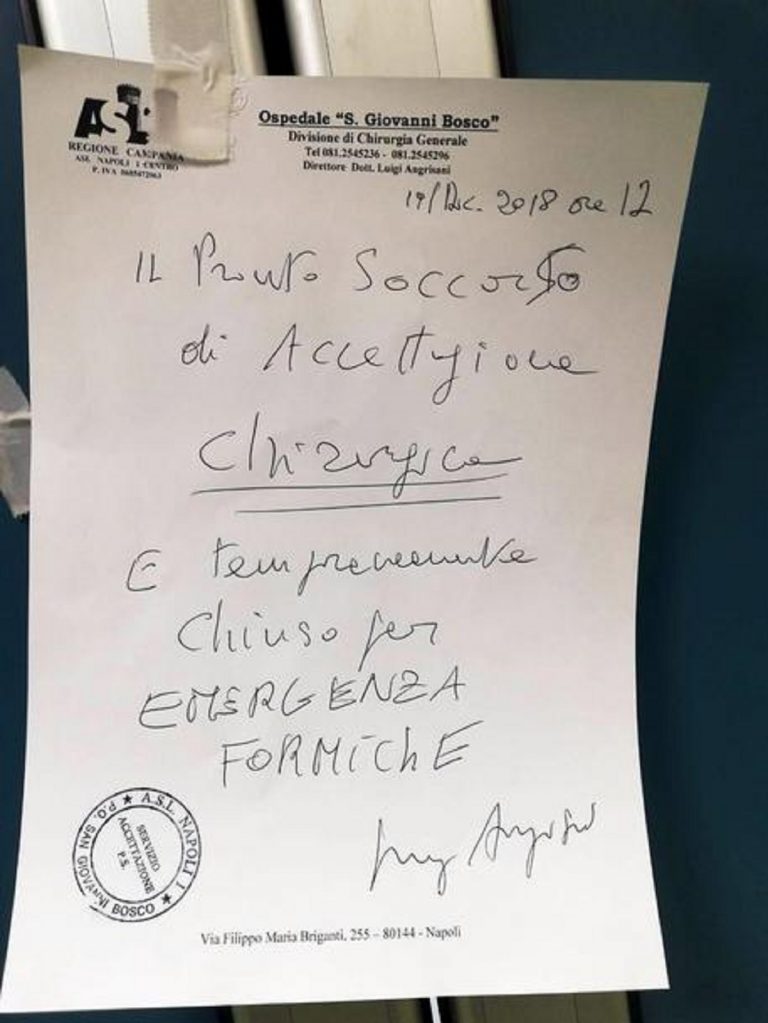 ASL
REGIONE CAMPANIA
ASL NAPOLI 1 CENTRO
P. IVA 0685472063
Ospedale "S. Giovanni Bosco"
Divisione di Chirurgia Generale
Tel 081.2545236 - 081.2545296
Direttore Dott. Luigi Angrisani
19/Dic. 2018 ore 12
IL Pronto Soccorso
di Accettazione
Chirurgica
E temporaneamente
Chiuso per
EMERGENZA
FORMIChE
A.S.L. NAPOLI 1 ★ P.O. SAN GIOVANNI BOSCO ★
SERVIZIO
ACCETTAZIONE
P.S.
Via Filippo Maria Briganti, 255 – 80144 - Napoli